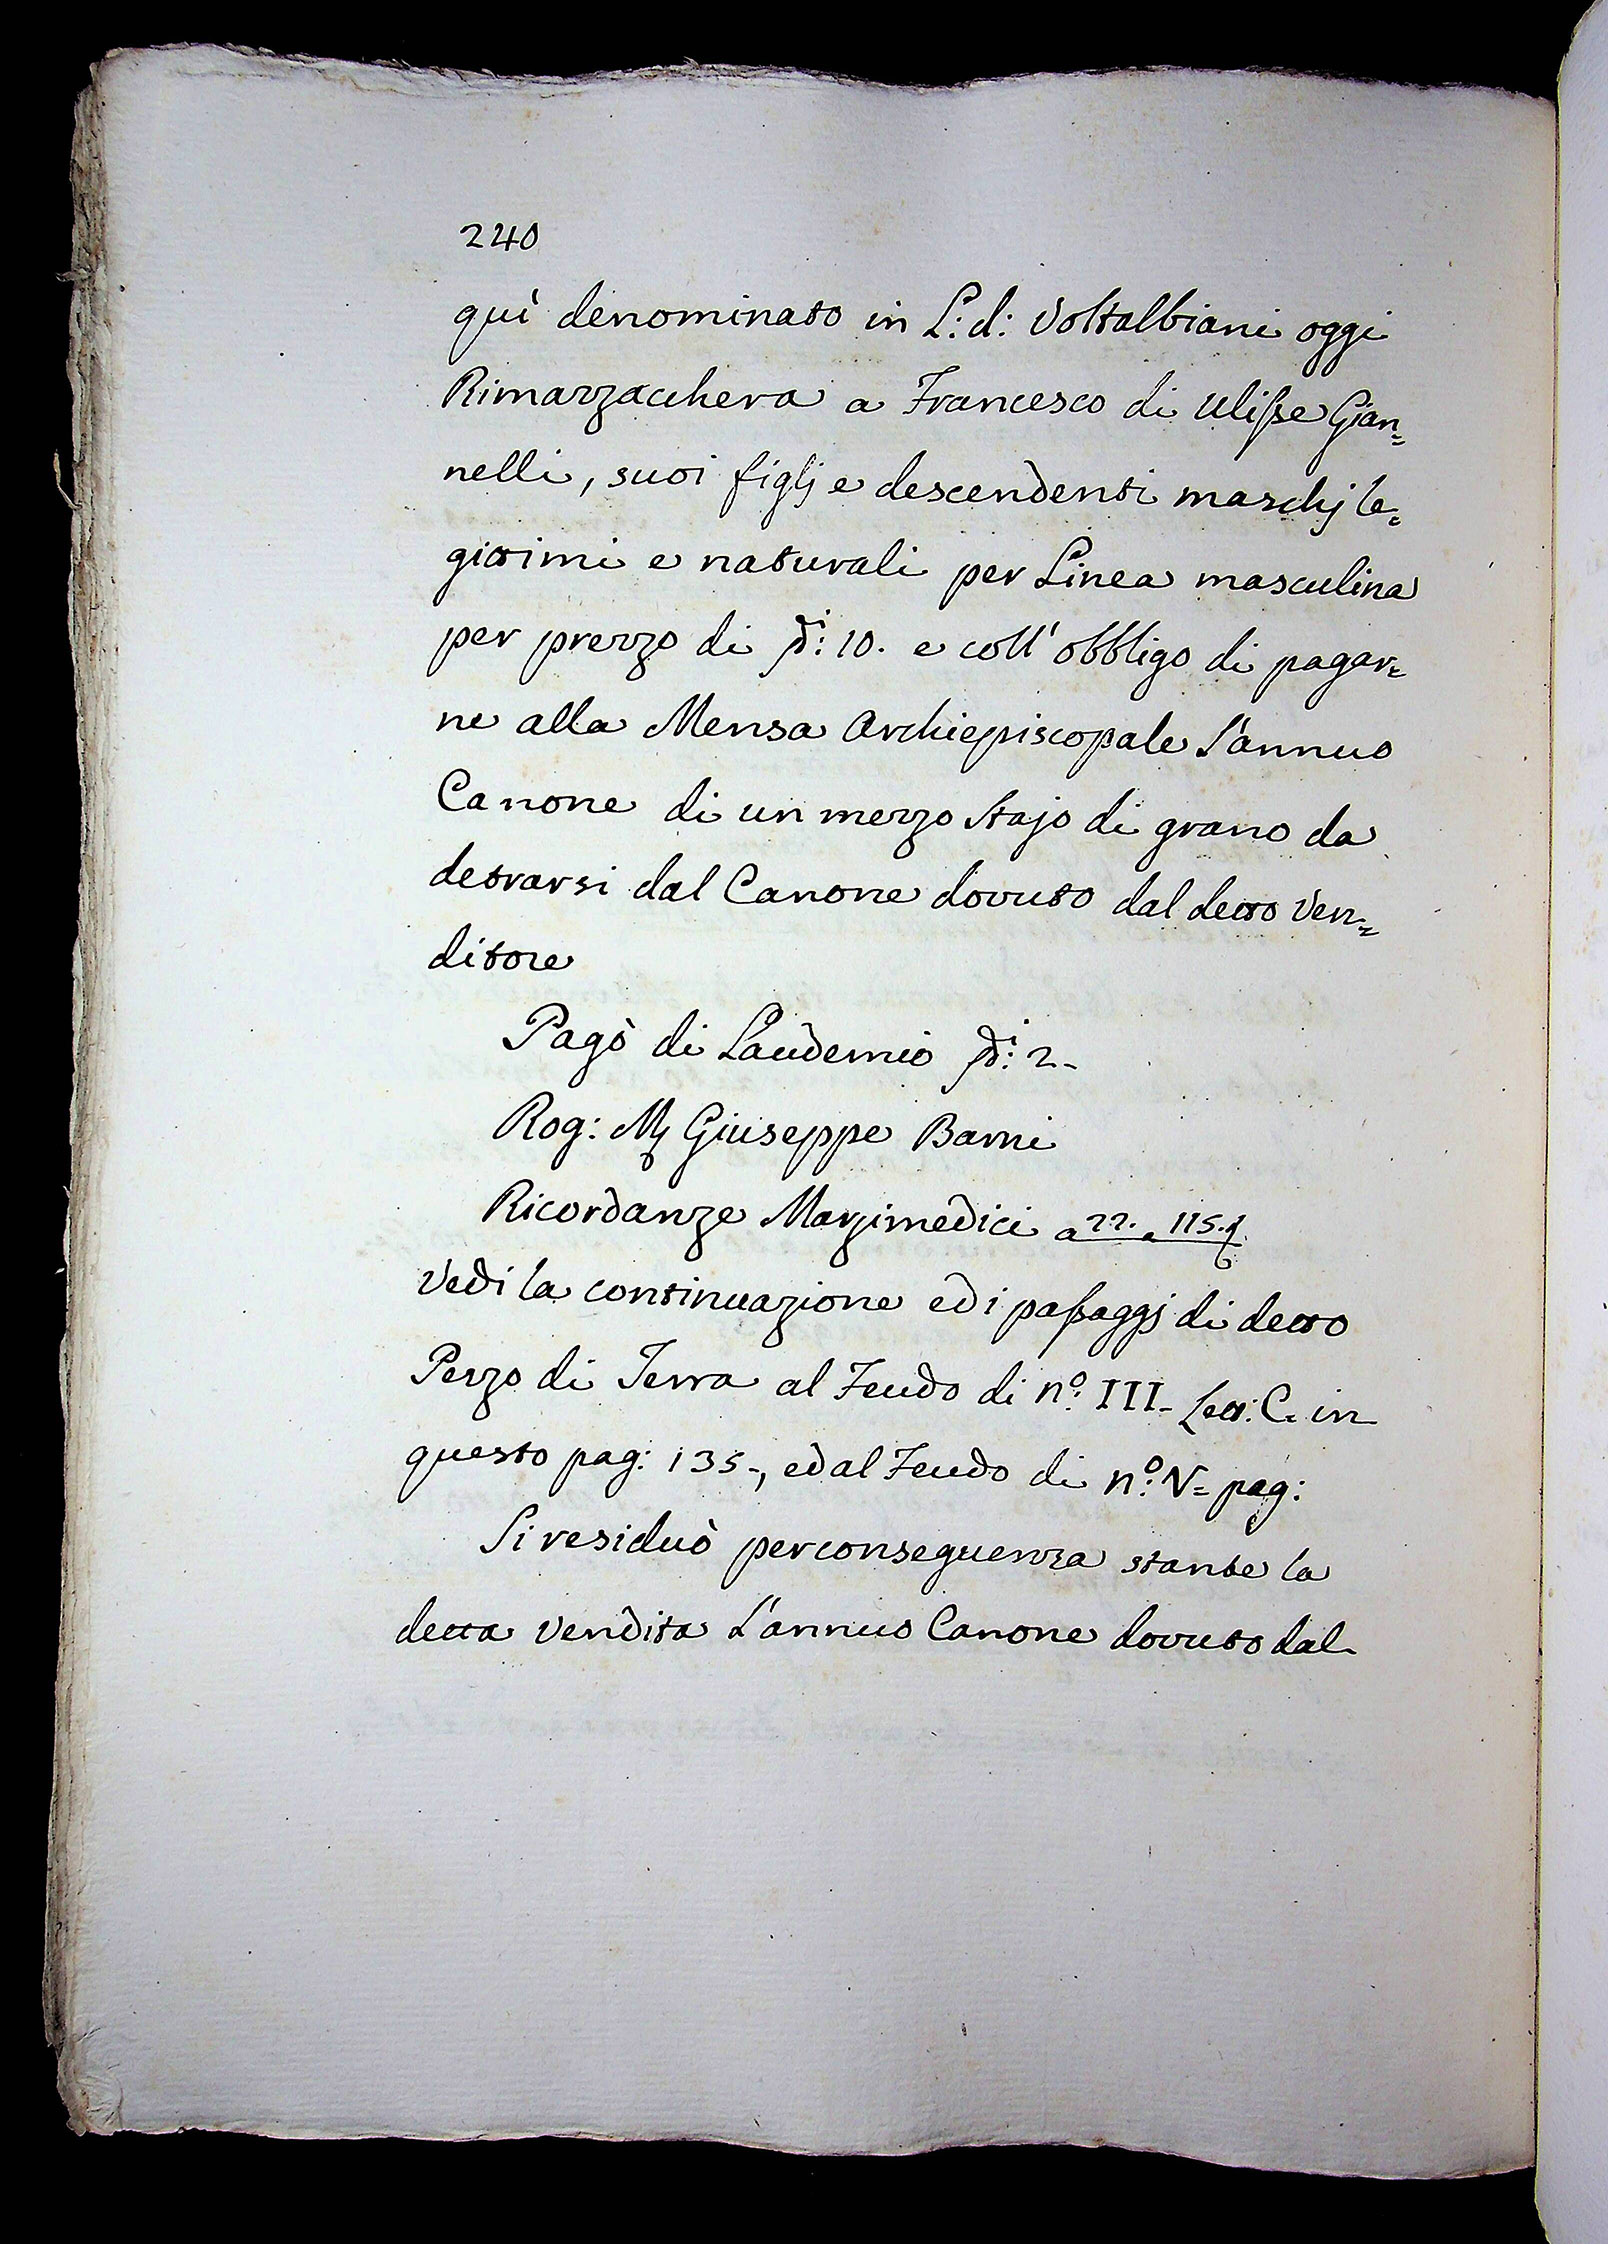 240
quì denominato in L: d: Voltalbiani oggi
Rimazzacchera a Francesco di Ulisse Gian=
nelli, suoi figlj e descendenti maschj le=
gittimi e naturali per Linea masculina
per prezzo di di: 10. e coll' obbligo di pagar=
ne alla Mensa Archiepiscopale l'annuo
Canone di un mezzo Stajo di grano da
detrarsi dal Canone dovuto dal detto Ven=
ditore
Pagò di Laudemio di: 2-
Rog: Giuseppe Barni
Ricordanze Marzimedici a 22. a 115.
Vedi la continuazione ed i passaggj di detto
Pezzo di Terra al Feudo di nº: III- Lett: C. in
questo pag: 135-, ed al Feudo di nº: V= pag:
Si residuò per conseguenza stante la
detta Vendita l'annuo Canone dovuto dal